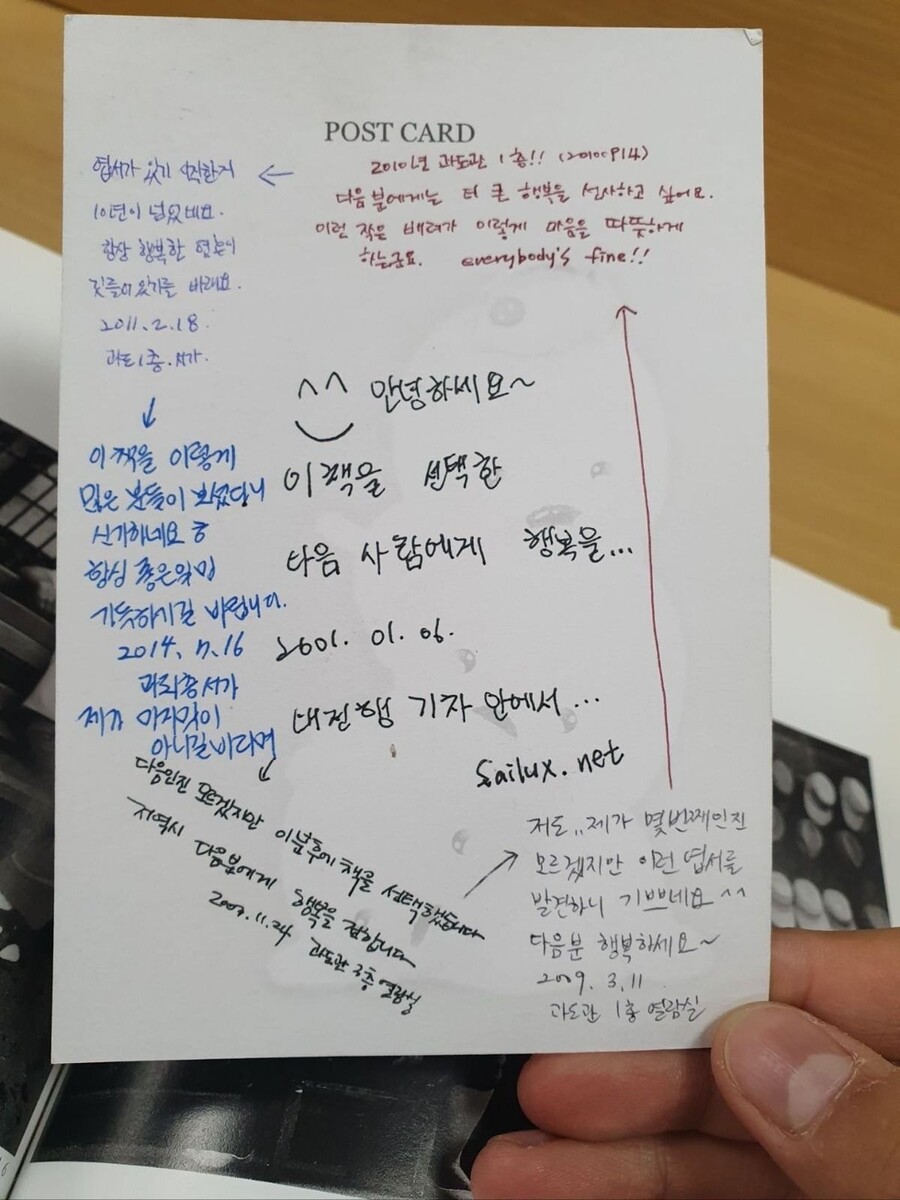 POST CARD
2010년 과도관 1층!! (20100914)
다음 분에게는 더 큰 행복을 선사하고 싶어요.
이런 작은 배려가 이렇게 마음을 따뜻하게
하는군요. everybody's fine!!
엽서가 있기 시작한지
10년이 넘었네요.
항상 행복한
있기를 바래요.
2011. 2. 18.
과도 1층. 서가.
이 책을 이렇게
많은 분들이 보셨다니
신기하네요 ㅎ
항상 좋은일만
가득하시길 바랍니다.
2014. 7. 16
서가
제가 마지막이
아니길 바라며
^^ 안녕하세요~
이 책을 선택한
다음 사람에게 행복을...
2001. 01. 06.
대전행 기차 안에서...
Sailux.net
다음인진 모르겠지만 이분후에 책을 선택했습니다
저역시 다음분에게 행복을 전합니다
11. 24 과도관 3층 열람실
저도.. 제가 몇번째인진
모르겠지만 이런 엽서를
발견하니 기쁘네요 ^^
다음분 행복하세요~
2009. 3. 11
과도관 1층 열람실